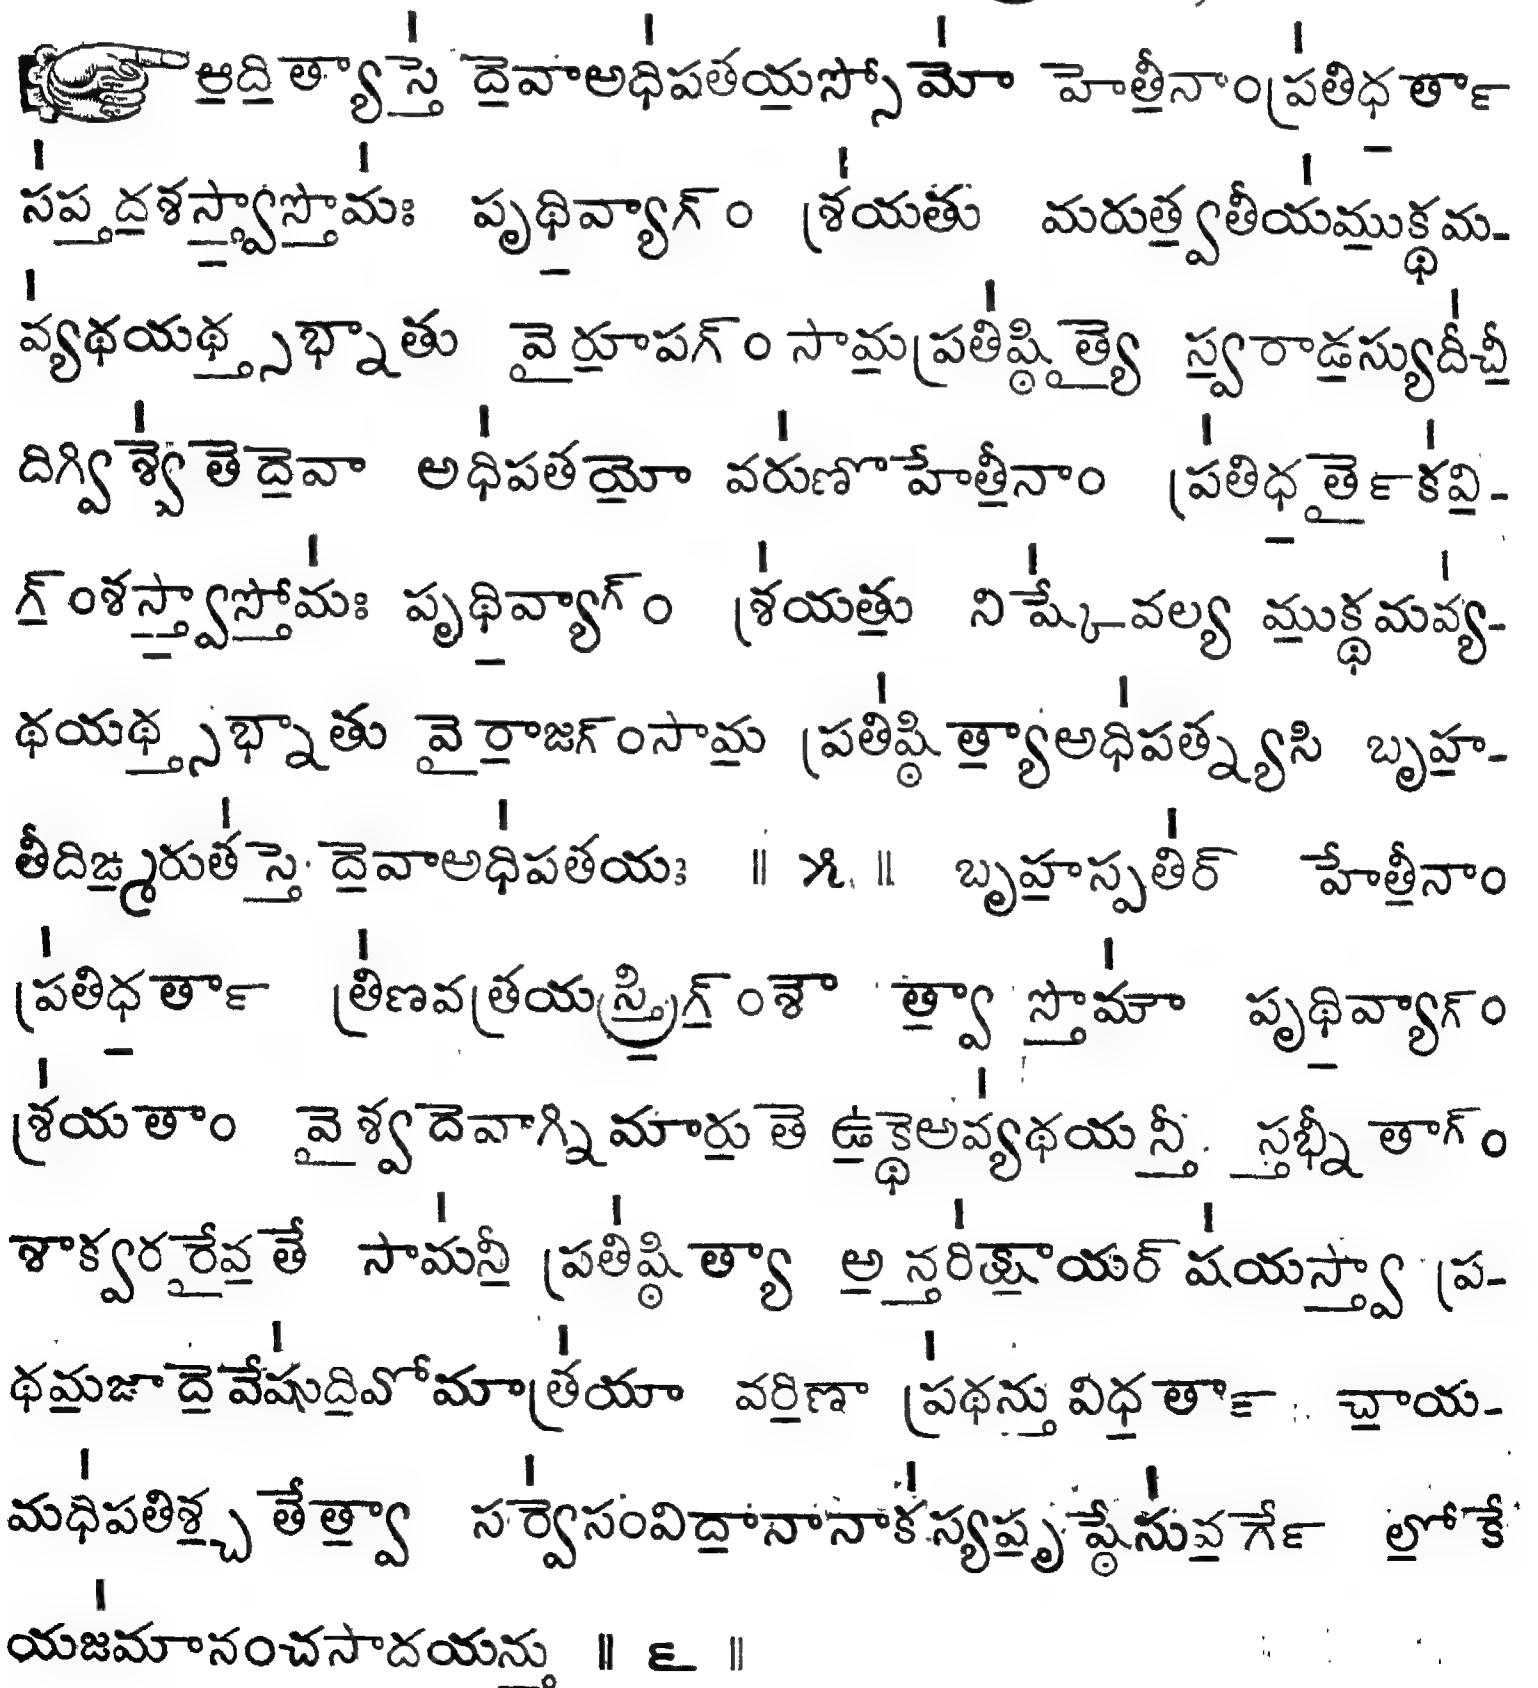 ☞ ఆ॒ది॒త్యాస్తే॑ దే॒వాఅధి॑పతయ॒స్సోమో॑ హేతీ॒నాంప్ర॑తిధ॒ర్తా
స॑ప్తద॒శస్త్వా॒స్తోమః॑ పృథి॒వ్యాగ్ం శ్ర॑యతు మరుత్వ॒తీయ॑ము॒క్థమ-
వ్య॑థయథ్స్త॒భ్నాతు వైరూ॒పగ్ం సామ॒ప్రతి॑ష్ఠిత్యై॒ స్వ॒రాడ॒స్యుదీ॑చీ॒
దిగ్విశ్వే॑తేదే॒వా అధి॑పతయో॒ వరు॑ణోహేతీ॒నాం ప్ర॑తిధ॒ర్తైక॑వి॒-
గ్ం॒శస్త్వా॒స్తోమః॑ పృథి॒వ్యాగ్ం శ్ర॑యతు॒ నిష్కే॑వల్య ము॒క్థమవ్య॑-
థయథ్స్త॒భ్నాతు వైరా॒జగ్ంసామ॒ ప్రతి॑ష్ఠిత్యా॒అధి॑పత్న్యసి బృహ॒-
తీదిఙ్మ॒రుత॑స్తే॒ దే॒వాఅధి॑పతయః ॥ ౫ ॥ బృహ॒స్పతి॑ర్ హేతీ॒నాం
ప్ర॑తిధ॒ర్తా త్రి॑ణవత్రయస్త్రి॒గ్ం॒శౌ త్వా॒ స్తోమౌ॑ పృథి॒వ్యాగ్ం
శ్ర॑యతాం వైశ్వదేవాగ్నిమారు॒తే ఉ॒క్థేఅవ్య॑థయన్తీ॒ స్తభ్నీతాగ్ం
శాక్వరరై॒వ॒తే సామ॑నీ॒ ప్రతి॑ష్ఠిత్యా అ॒న్తరి॑క్షా॒యర్ష॑యస్త్వా॒ ప్ర-
థమ॒జాదే॒వేషు॑ది॒వోమాత్ర॑యా వరి॒ణా ప్ర॑థన్తు విధ॒ర్తా॒ చా॒య-
మధి॑పతిశ్చ॒తేత్వా॒ సర్వే॑సంవిదా॒నానాక॑స్యపృ॒ష్ఠేసు॑వ॒ర్గే లో॒కే
యజ॑మానంచసాదయన్తు॒ ॥ ౬ ॥